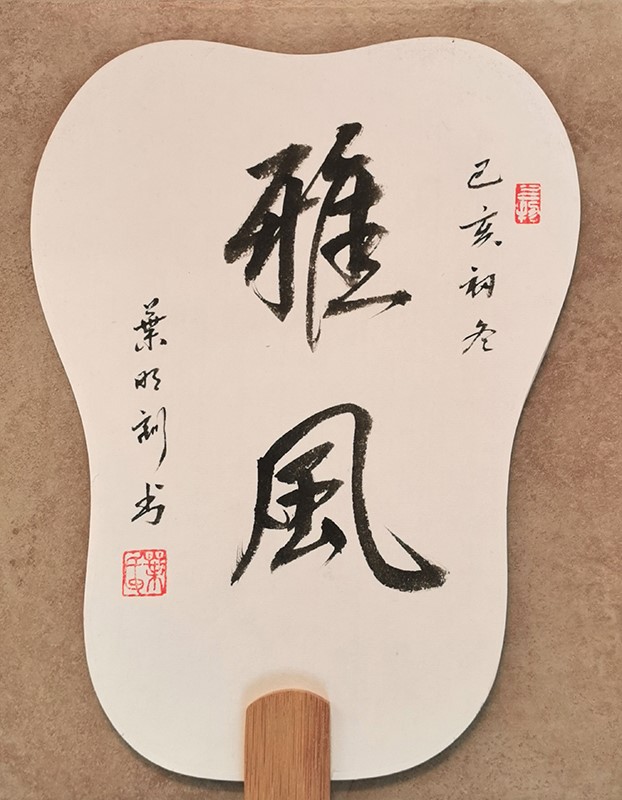 己亥初冬
雅風
葉明訓书